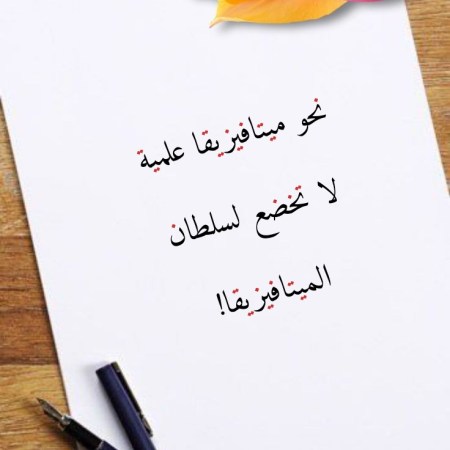 نحو ميتافيزيقا علمية
لا تخضع لسلطان
الميتافيزيقا!